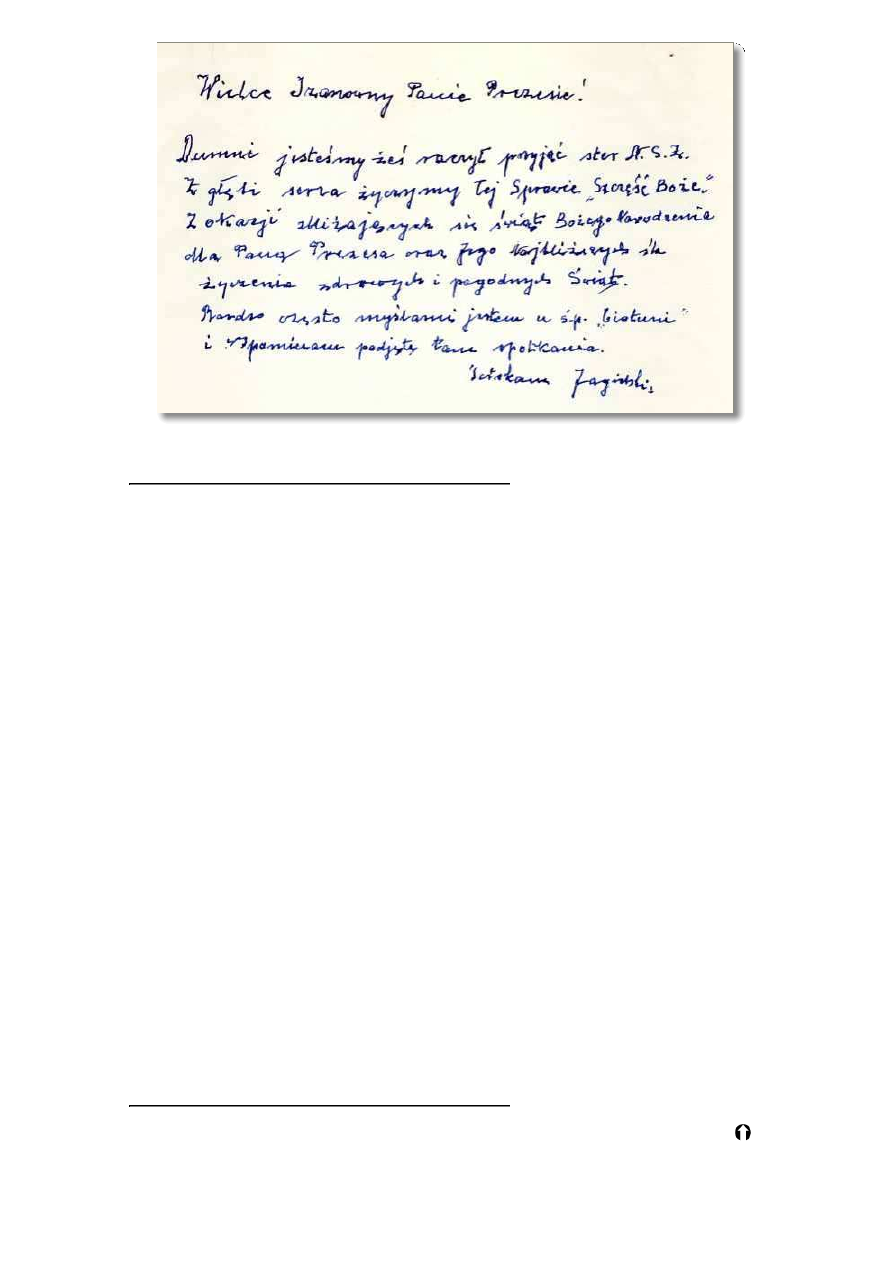 Wielce Szanowny Panie Prezesie!
Dumni jesteśmy żeś raczył przyjąć ster N.S.Z.
Z głębi serca życzymy tej Sprawie „Szczęść Boże."
Z okazji zbliżających się świąt Bożego Narodzenia
dla Pana Prezesa oraz Jego Najbliższych ślę
życzenia zdrowych i pogodnych Świąt.
Bardzo często myślami jestem u ś.p.
i wspominam podjęte tam spotkania.